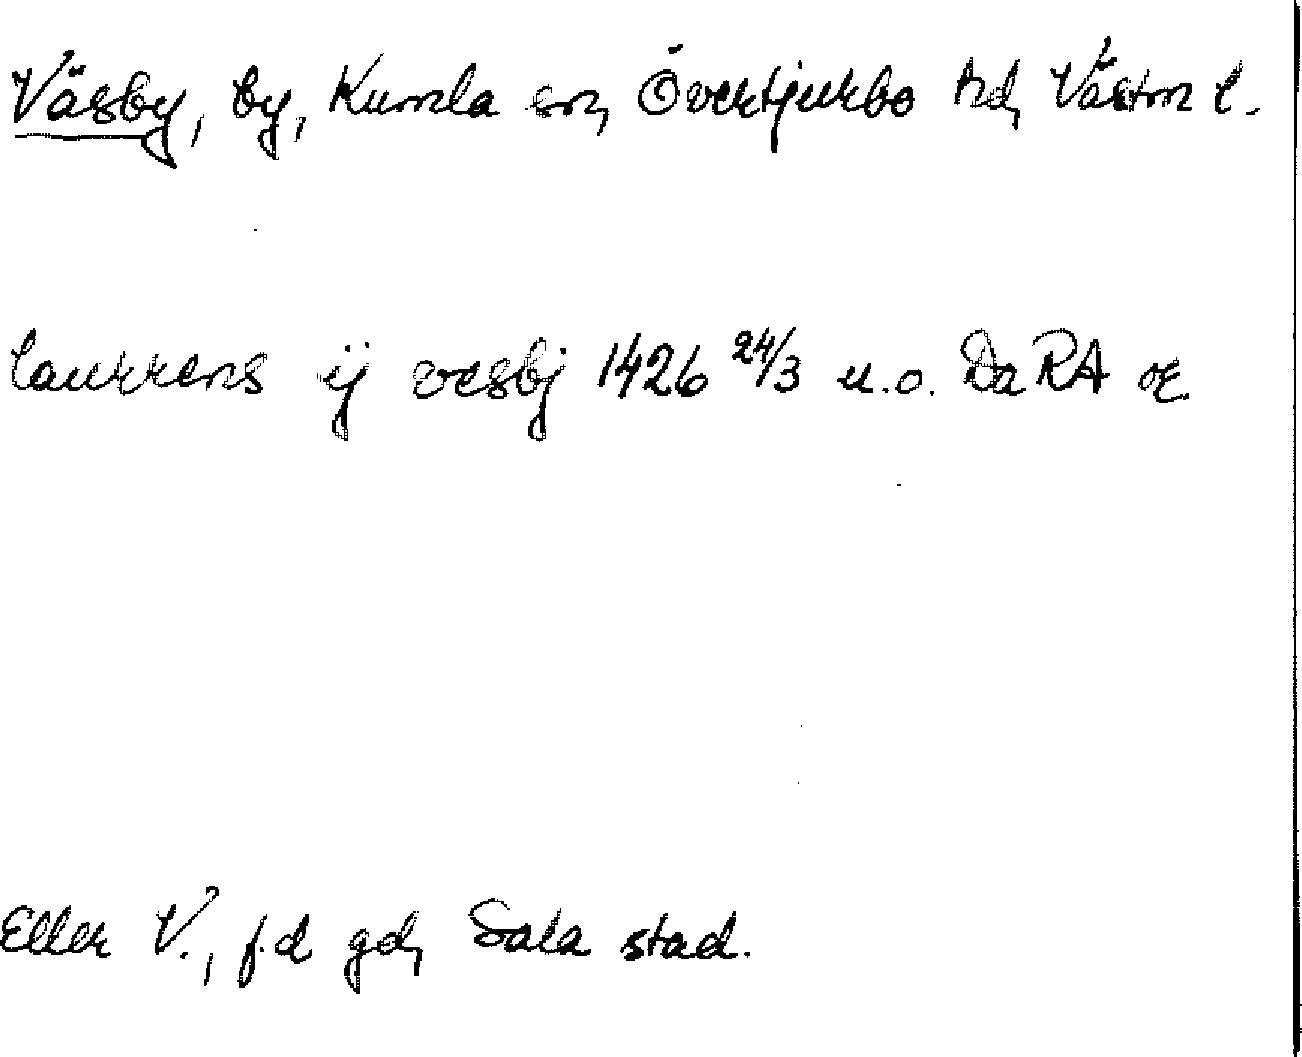 Väsby, by, Kumla sn, Övertjurbo hd, Västm l.
laurrens ij vesbj 1426 24/3 u.o. Da RA or.
Eller V., f.d gd, Sala stad.